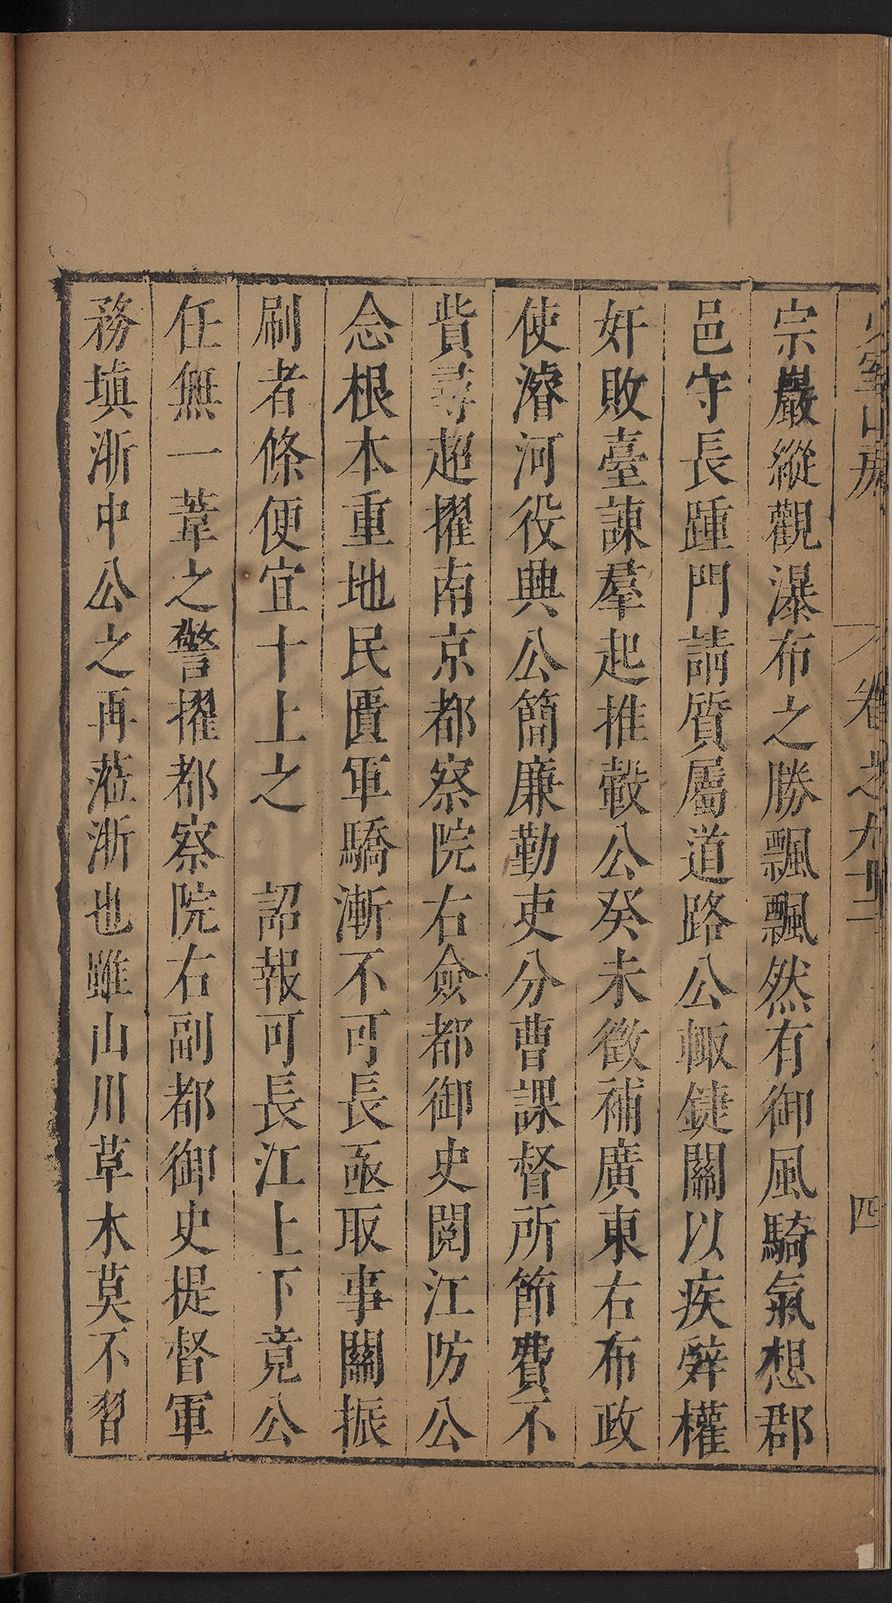 少室山房　卷之九十二　四
宗巖縱觀瀑布之勝飄飄然有御風騎氣想郡
邑守長踵門請質屬道路公輙鍵關以疾辤權
奸敗臺諫羣起推轂公癸未徵補廣東右布政
使濬河役興公簡廉勤吏分曹課督所節費不
貲尋超擢南京都察院右僉都御史閱江防公
念根本重地民匱軍驕漸不可長亟取事關振
刷者條便宜十上之　詔報可長江上下竟公
任無一葦之警擢都察院右副都御史提督軍
務填浙中公之再蒞浙也雖山川草木莫不習